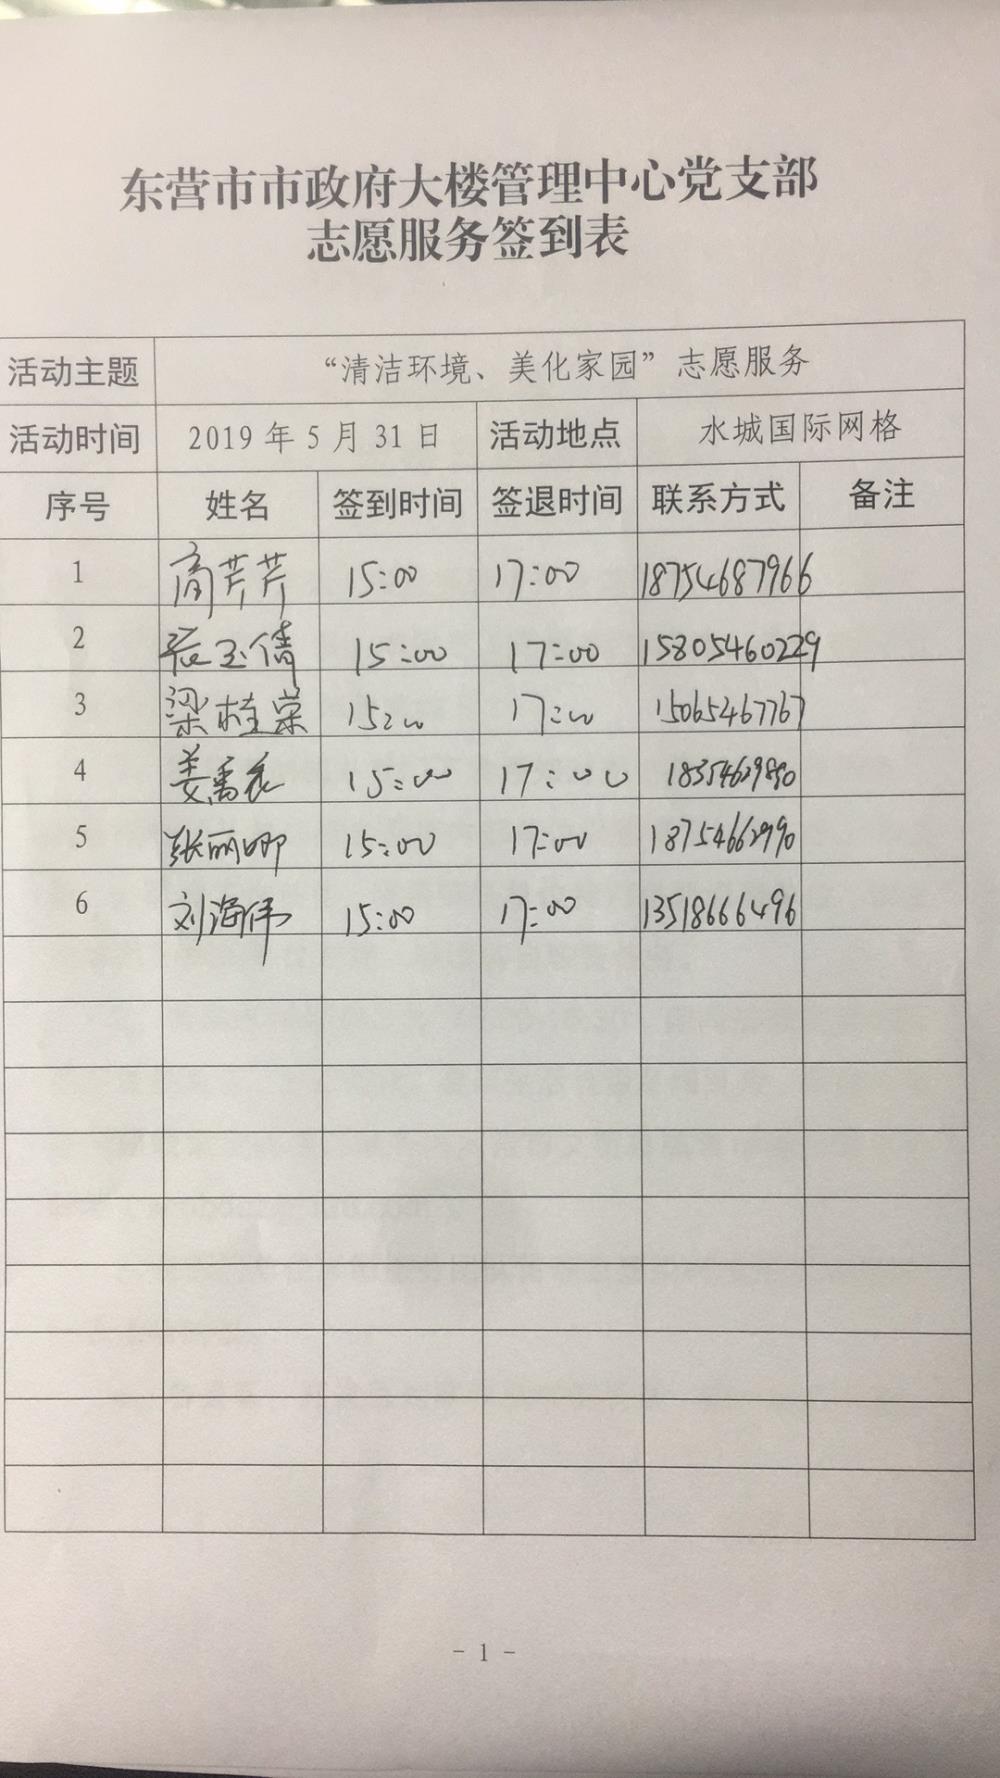 东营市市政府大楼管理中心党支部
志愿服务签到表
活动主题 “清洁环境、美化家园”志愿服务
活动时间 2019 年 5 月 31 日 活动地点 水城国际网格
序号 姓名 签到时间 签退时间 联系方式 备注
1 商芹芹 15:00 17:00 18754687966
2 张玉倩 15:00 17:00 15805460229
3 梁桂棠 15:00 17:00 15065467767
4 姜 15:00 17:00
5 张丽娜 15:00 17:00 18754662990
6 刘海伟 15:00 17:00 13518666496
- 1 -